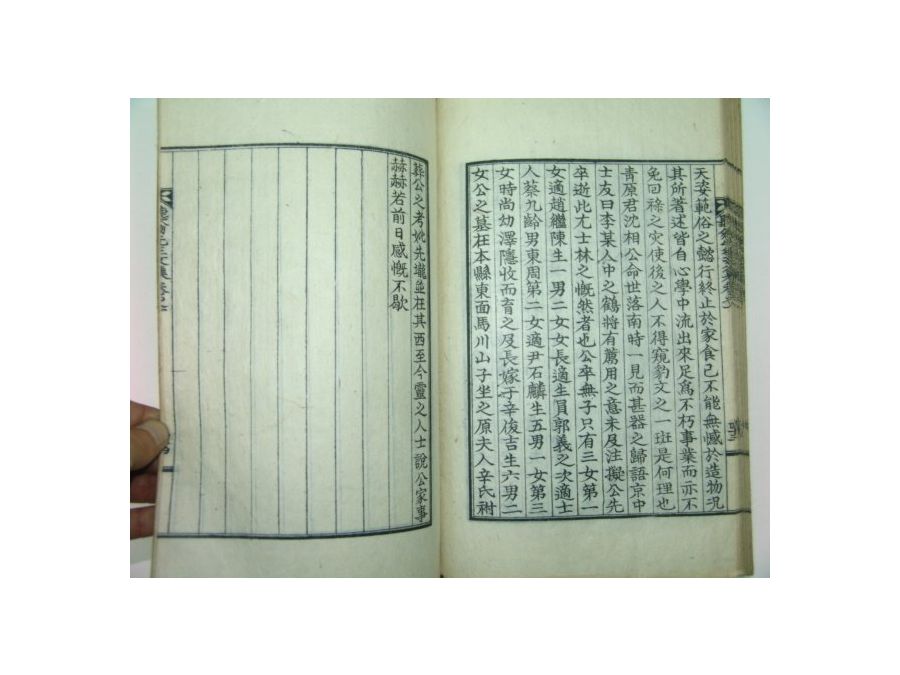 天姿範俗之懿行終止於家食已不能無憾於造物況
其所著述皆自心學中流出來足爲不朽事業而亦不
免回祿之灾使後之人不得窺豹文之一班是何理也
青原君沈相公命世落南時一見而甚器之歸語京中
士友曰李某人中之鶴將有薦用之意未及注擬公先
卒逝此尤士林之慨然者也公卒無子只有三女第一
女適趙繼陳生一男二女女長適生員郭義之次適士
人蔡九齡男東周第二女適尹石麟生五男一女第三
女時尚幼澤隱收而育之及長嫁于辛俊吉生六男二
女公之墓在本縣東面馬川山子坐之原夫人辛氏祔
葬公之考妣先壠並在其西至今靈之人士說公家事
赫赫若前日感慨不歇